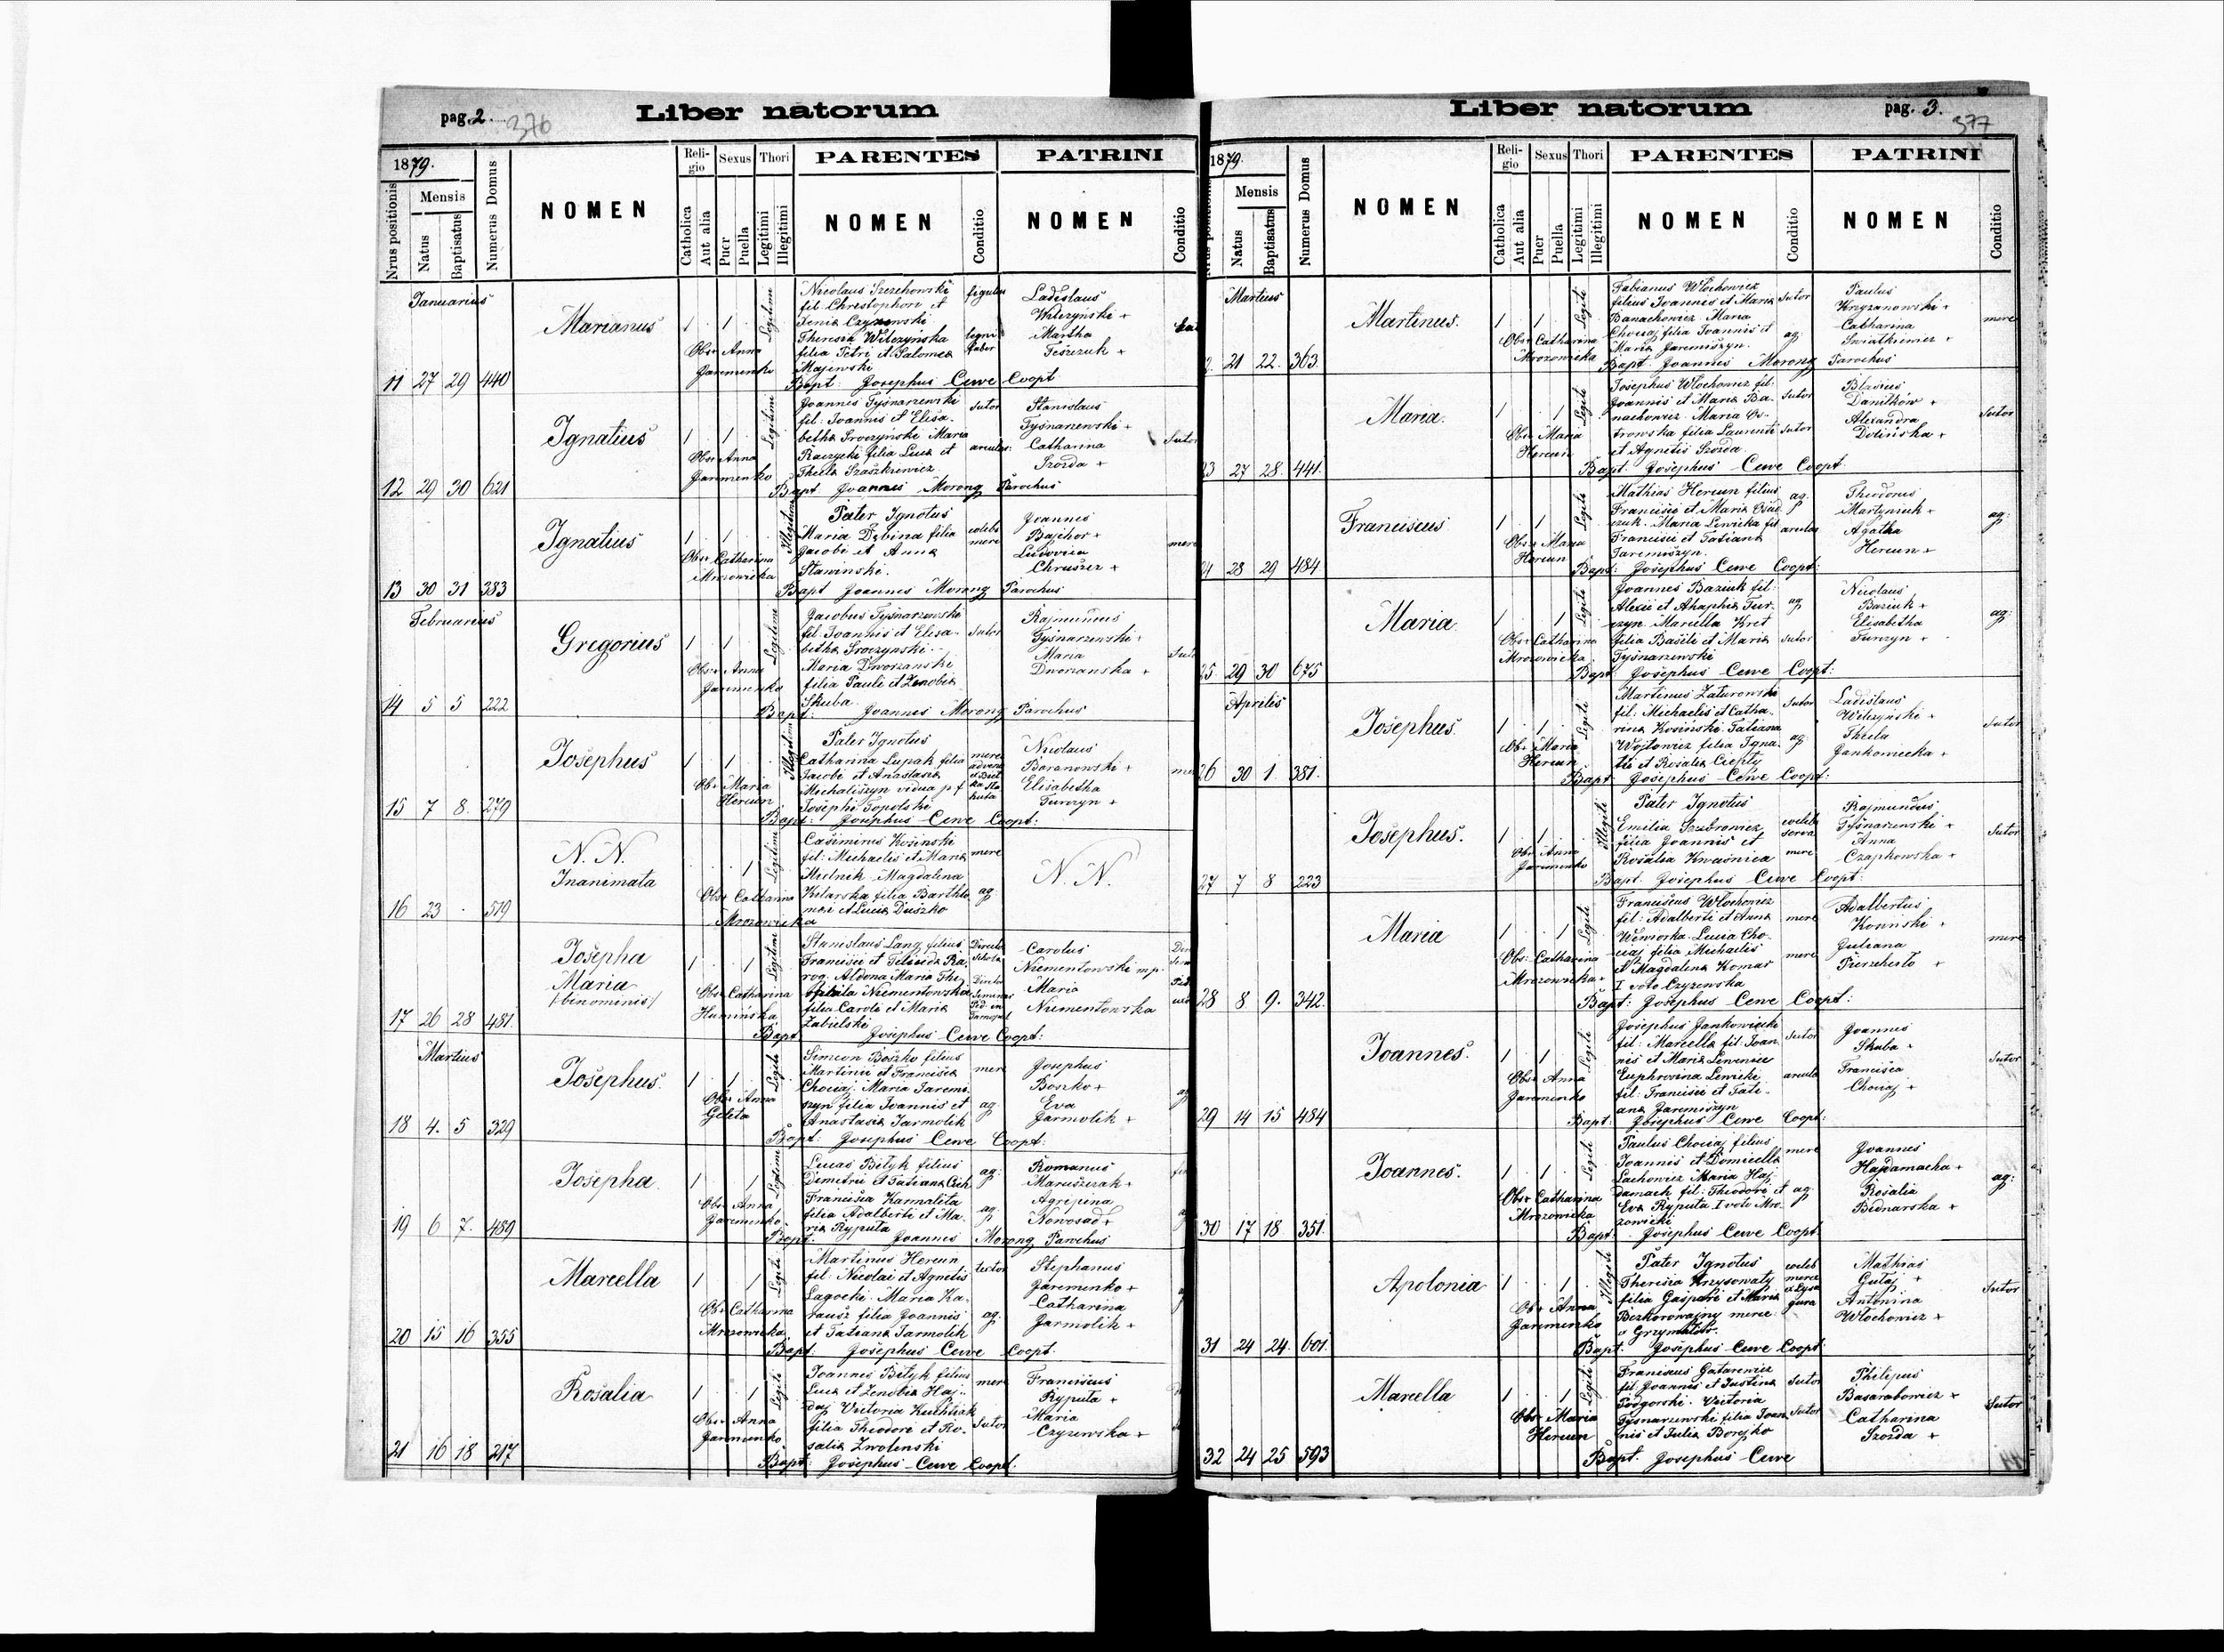 pag. 2. 376 Liber natorum
1879.
Nrus positionis
Mensis
Natus
Baptisatus
Numerus Domus
NOMEN
Religio
Catholica
Aut alia
Sexus
Puer
Puella
Thori
Legitimi
Illegitimi
PARENTES
NOMEN
Conditio
PATRINI
NOMEN
Conditio
Januarius
11 27 29 440
Marianus
1 1
Legitimi
Obs+ Anna
Jaremenko
Nicolaus Szezehowski
fil. Christophori et
Czyzewski
Theresia Wilczynska
filia Petri et Salomea
Majewski
figulus
ligni
faber
Ladislaus
Wilczynski +
Martha
Teszczuk +
Bapt. Josephus Cewe Coopt
12 29 30 621
Ignatius
1 1
Legitimi
Obs+ Anna
Jaremenko
Joannes Tyśnarzewski
fil. Joannis et Elisa-
betha Sroczynski Maria
Raczycki filia Luca et
Thecla Szaszkiewicz
Sutor
arcular:
Stanislaus
Tyśnarzewski +
Catharina
Szozda +
Sutor
Bapt Joannes Morong Parochus
13 30 31 383
Ignatius
1 1
Illegitimi
Obs+ Catharina
Mrozowicka
Pater Ignotus
Maria Dębina filia
Jacobi et Anna
Stawinski.
coelebs
merc
Joannes
Bajchor +
Ludovica
Chruszcz +
merc
Bapt Joannes Morong Parochus
Februarius
14 5 5 222
Gregorius
1 1
Legitimi
Obs+ Anna
Jaremenko
Jacobus Tyśnarzewski
fil. Joannis et Elisa-
betha Sroczynski.
Maria Dworzanski
filia Pauli et Zenobia
Skuba.
Sutor
Rajmundus
Tyśnarzewski +
Maria
Dworzanska +
Bapt: Joannes Morong Parochus
15 7 8. 279
Josephus
1 1
Illegitimi
Obs+ Maria
Hercun
Pater Ignotus
Catharina Lupak filia
Jacobi et Anastasia
Michaliszyn vidua p f
Josephi Topolski
merc
advena
Nicolaus
Baranowski +
Elisabetha
Turczyn +
Bapt: Josephus Cewe Coopt:
16 23 . 519
N. N.
Inanimata
1
Legitimi
Obs+ Catharina
Mrozowicka
Casimirus Kosinski
fil: Michaelis et Maria
Mielnik Magdalena
Kilarska filia Barthlo-
mei et Lucia Duszko
merc
ag:
N. N.
17 26 28 481.
Josepha
Maria
/binominis/
1 1
Legitimi
Obs+ Catharina
Huminska
Stanislaus Lang filius
Francisci et Felicida Ra-
rog. Aldona Maria The-
ophila Niementowska
filia Caroli et Maria
Zabielski
Carolus
Niementowski mp.
Maria
Niementowska
Bapt Josephus Cewe Coopt:
Martius
18 4. 5 329
Josephus.
1 1
Legiti
Obs+ Anna
Geleta
Simeon Boszko filius
Martini et Francisca
Chociaj. Maria Jaremi-
szyn filia Joannis et
Anastasia Jarmolik
merc
ag.
Josephus
Boszko +
Eva
Jarmolik +
Bapt: Josephus Cewe Coopt:
19 6 7. 489
Josepha
1 1
Legitimi
Obs+ Anna
Jaremenko
Lucas Bilyk filius
Demetrii et Tatiana Cich
Francisca Karmalita
filia Adalberti et Ma-
ria Ryputa
ag:
ag.
Romanus
Maruszczak +
Agripina
Nowosad +
Bapt: Joannes Morong Parochus
20 15 16 355
Marcella
1 1
Legiti
Obs+ Catharina
Mrozowicka
Martinus Hercun
fil. Nicolai et Agnetis
Lagocki. Maria Ka-
rausz filia Joannis
et Tatiana Jarmolik
tector
ag.
Stephanus
Jaremenko +
Catharina
Jarmolik +
Bapt: Josephus Cewe Coopt.
21 16 18 217
Rosalia
1 1
Legiti
Obs+ Anna
Jaremenko
Joannes Bilyk filius
Luca et Zenobia Haj-
daj Victoria Kuchtiak
filia Theodori et Ro-
salia Zwolenski
merc
Sutor
Franciscus
Ryputa +
Maria
Czyzewska +
Bapt: Josephus Cewe Coopt.
Liber natorum pag. 3. 377
1879.
Nrus positionis
Mensis
Natus
Baptisatus
Numerus Domus
NOMEN
Religio
Catholica
Aut alia
Sexus
Puer
Puella
Thori
Legitimi
Illegitimi
PARENTES
NOMEN
Conditio
PATRINI
NOMEN
Conditio
Martius
21 22. 363.
Martinus.
1 1
Legiti
Obs+ Catharina
Mrozowicka
Fabianus Włochowicz
filius Joannis et Maria
Banachowicz. Maria
Chociaj filia Joannis et
Maria Jaremiszyn.
Sutor
ag.
Paulus
Krzyzanowski +
Catharina
Swiatkiewicz +
merc
Bapt. Joannes Morong Parochus
23 27 28. 441.
Maria.
1 1
Legiti
Obs+ Maria
Hercun
Josephus Włochowicz fil:
Joannis et Maria Ba-
nachowicz. Maria Os-
trowska filia Laurenti
et Agnetis Szozda
Sutor
Sutor
Blasius
Danilków +
Alexandra
Dolinska +
Sutor
Bapt. Josephus Cewe Coopt.
24 28 29 484
Franciscus
1 1
Legiti
Obs+ Maria
Hercun
Mathias Hercun filius
Francisci et Maria
czuk. Maria Lewicka fil
Francisci et Tatiana
Jaremiszyn.
ag.
arcular
Theodorus
Martyniuk +
Agatha
Hercun +
ag:
Bapt: Josephus Cewe Coopt:
25. 29 30 675
Maria.
1 1
Legiti
Obs+ Catharina
Mrozowicka
Joannes Baziuk fil:
Alexii et Ahaphia Tur-
czyn. Marcella Kret
filia Basili et Maria
Tyśnarzewski
ag
Sutor
Nicolaus
Baziuk +
Elisabetha
Turczyn +
ag:
Bapt Josephus Cewe Coopt:
Aprilis
26 30 1. 381.
Josephus.
1 1
Legiti
Obs+ Maria
Hercun
Martinus Zaturowski
fil: Michaelis et Catha-
rina Kosinski. Tatiana
Wojtowicz filia Igna-
tii et Rosalia Ciepły
Sutor
ag.
Ladislaus
Wilczynski +
Thecla
Jankowiecka +
Sutor
Bapt: Josephus Cewe Coopt:
27 7 8 223
Josephus.
1 1
Illegiti
Obs+ Anna
Jaremenko
Pater Ignotus
Emilia Szubrowicz
filia Joannis et
Rosalia Kwasnica
coelebs
serva
merc
Rajmundus
Tyśnarzewski +
Anna
Czapkowska +
Sutor
Bapt. Josephus Cewe Coopt:
28 8 9. 342.
Maria
1 1
Legiti
Obs: Catharina
Mrozowicka +
Franciscus Włochowicz
fil: Adalberti et Anna
Wiewiorka. Lucia Cho-
ciaj filia Michaelis
et Magdalena Komar
I voto Czyzewska
merc
merc
Adalbertus
Kosinski +
Juliana
Pierzchało +
merc
Bapt: Josephus Cewe Coopt:
29 14 15 484
Joannes.
1 1
Legiti
Obs+ Anna
Jaremenko
Josephus Jankowiecki
fil: Marcella fil. Joan-
nis et Maria Lewenice
Euphrosina Lewicki
fil: Francisci et Tati-
ana Jaremiszyn
Sutor
arcula
Joannes
Skuba +
Francisca
Chociaj +
Sutor
Bapt: Josephus Cewe Coopt:
30 17 18 351.
Joannes.
1 1
Legiti
Obs+ Catharina
Mrozowicka
Paulus Chociaj filius
Joannis et Domicella
Lachowicz Maria Haj-
damach fil: Theodori et
Eva Ryputa I voto Mro-
zowicki
merc
ag.
Joannes
Hajdamacha +
Rosalia
Bednarska +
ag:
Bapt. Josephus Cewe Coopt.
31 24 24. 601.
Apolonia
1 1
Illegiti
Obs+ Anna
Jaremenko
Pater Ignotus
Theresia Krzysowaty
filia Gaspari et Maria
Bezkorowajny merc
a Grzymałów.
coeleb
merc
a Łysa
gura
Mathias
Gutaj +
Antonina
Włochowicz +
Sutor
Bapt. Josephus Cewe Coopt.
32 24 25 593
Marcella
1 1
Legiti
Obs+ Maria
Hercun
Franciscus Gatarewicz
fil. Joannis et Justina
Podgorski. Victoria
Tyśnarzewski filia Joan-
nis et Julia Borejko
Sutor
Sutor
Philipus
Basarabowicz +
Catharina
Szozda +
Sutor
Bapt. Josephus Cewe